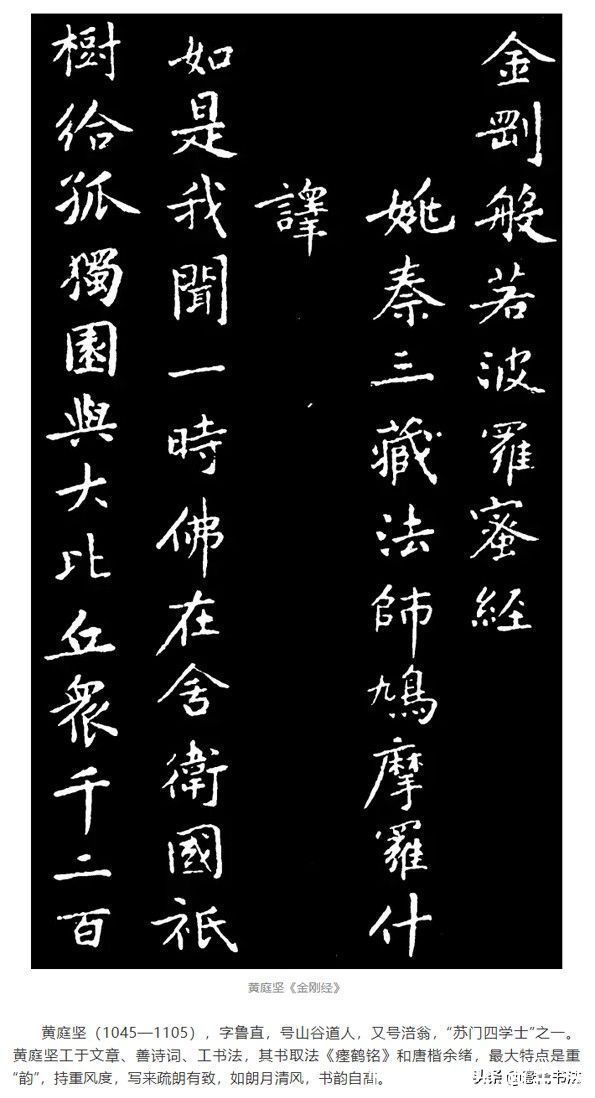 金剛般若波羅蜜經
姚秦三藏法師鳩摩羅什
譯
如是我聞一時佛在舍衛國祇
樹給孤獨園與大比丘眾千二百
黄庭坚《金刚经》
黄庭坚（1045—1105），字鲁直，号山谷道人，又号涪翁，“苏门四学士”之一。
黄庭坚工于文章、善诗词、工书法，其书取法《瘗鹤铭》和唐楷余绪，最大特点是重
“韵”，持重风度，写来疏朗有致，如朗月清风，书韵自高。
头条
书法